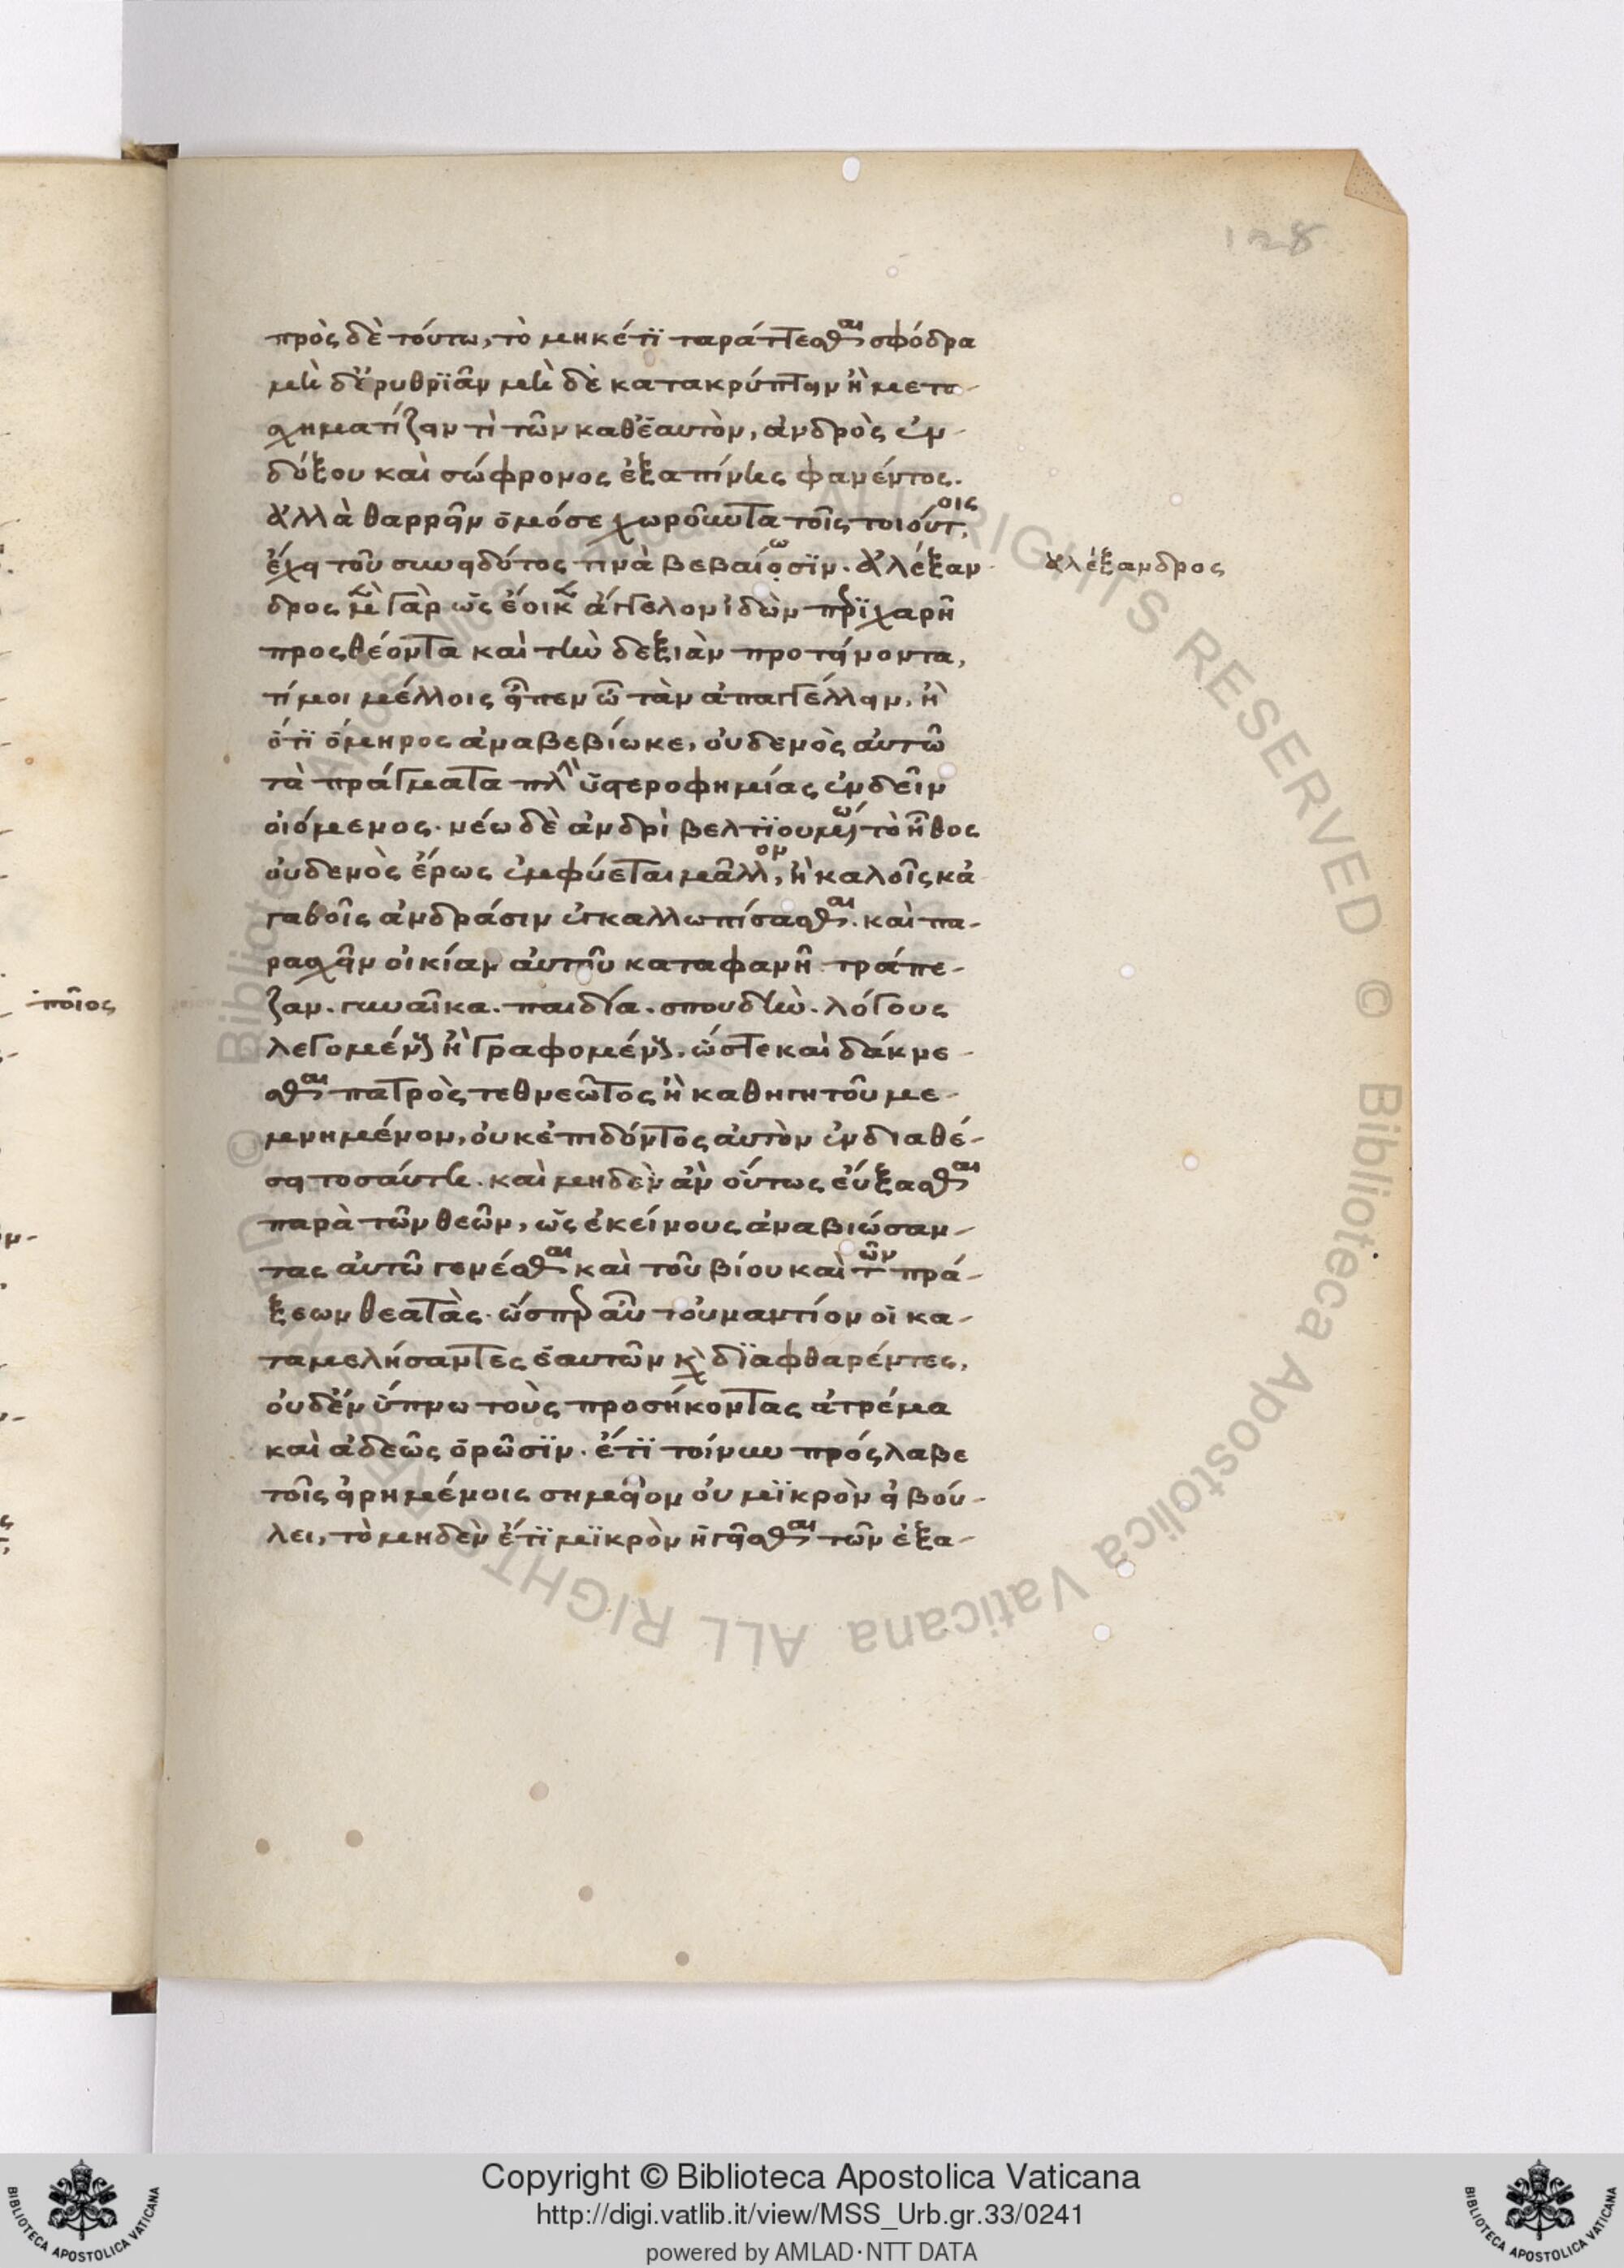 πρὸς δὲ τούτω, τὸ μηκέτϊ ταράττεσθαι σφόδρα
μὴ δ' ἐρυθρϊᾶν μὴ δὲ κατακρύπτειν ἢ μετα-
σχηματίζειν τὶ τῶν καθ' ἑαυτὸν, ἀνδρὸς ἐν-
δόξου καὶ σώφρονος ἐξαπίνης φανέντος.
ἀλλὰ θαρρεῖν ὁμόσε χωροῦντα τοῖς τοιούτοις,
ἔχει τοῦ συνειδότος τινὰ βεβαίωσϊν. ἀλέξαν
δρος μὲν γὰρ ὡς ἔοικεν ἄγγελον ἰδὼν περϊχαρῆ
προςθέοντα καὶ τὴν δεξιὰν προτείνοντα,
τί μοι μέλλοις εἶπεν ὦ τὰν ἀπαγγέλλειν, ἢ
ὅτϊ ὅμηρος ἀναβεβίωκε, οὐδενὸς αὐτῶ
τὰ πράγματα πλὴν ὑστεροφημίας ἐνδεῖν
οἰόμενος. νέω δὲ ἀνδρὶ βελτϊουμένω τὸ ἦθος
οὐδενὸς ἔρως ἐμφύεται μᾶλλον, ἢ καλοῖς κἀ
γαθοῖς ἀνδράσιν ἐγκαλλωπίσασθαι. καὶ πα-
ρασχεῖν οἰκίαν αὐτοῦ καταφανῆ. τράπε-
ζαν. γυναῖκα. παιδία. σπουδὴν. λόγους
λεγομένους ἢ γραφομένους. ὥστε καὶ δάκνε-
σθαι πατρὸς τεθνεῶτος ἢ καθηγητοῦ με-
μνημένον, οὐκ ἐπιδόντος αὐτὸν ἐν διαθέ-
σει τοσαύτη. καὶ μηδὲν ἂν οὕτως εὔξασθαι
παρὰ τῶν θεῶν, ὡς ἐκείνους ἀναβιώσαν-
τας αὐτῶ γενέσθαι καὶ τοῦ βίου καὶ τῶν πρά-
ξεων θεατὰς. ὥσπερ αὖ τοὐναντίον οἱ κα-
ταμελήσαντες ἑαυτῶν καὶ δϊαφθαρέντες,
οὐδ' ἐν ὕπνω τοὺς προσήκοντας ἀτρέμα
καὶ ἀδεῶς ὁρῶσϊν. ἔτϊ τοίνυν πρόςλαβε
τοῖς εἰρημένοις σημεῖον οὐ μϊκρὸν εἰ βού-
λει, τὸ μηδὲν ἔτϊ μϊκρὸν ἡγεῖσθαι τῶν ἐξα-
ἀλέξανδρος
ποῖος
128
Copyright © Biblioteca Apostolica Vaticana
http://digi.vatlib.it/view/MSS_Urb.gr.33/0241
powered by AMLAD·NTT DATA
© Biblioteca Apostolica Vaticana ALL RIGHTS RESERVED
© Biblioteca Apostolica Vaticana ALL RIGHTS RESERVED
BIBLIOTECA APOSTOLICA VATICANA
BIBLIOTECA APOSTOLICA VATICANA